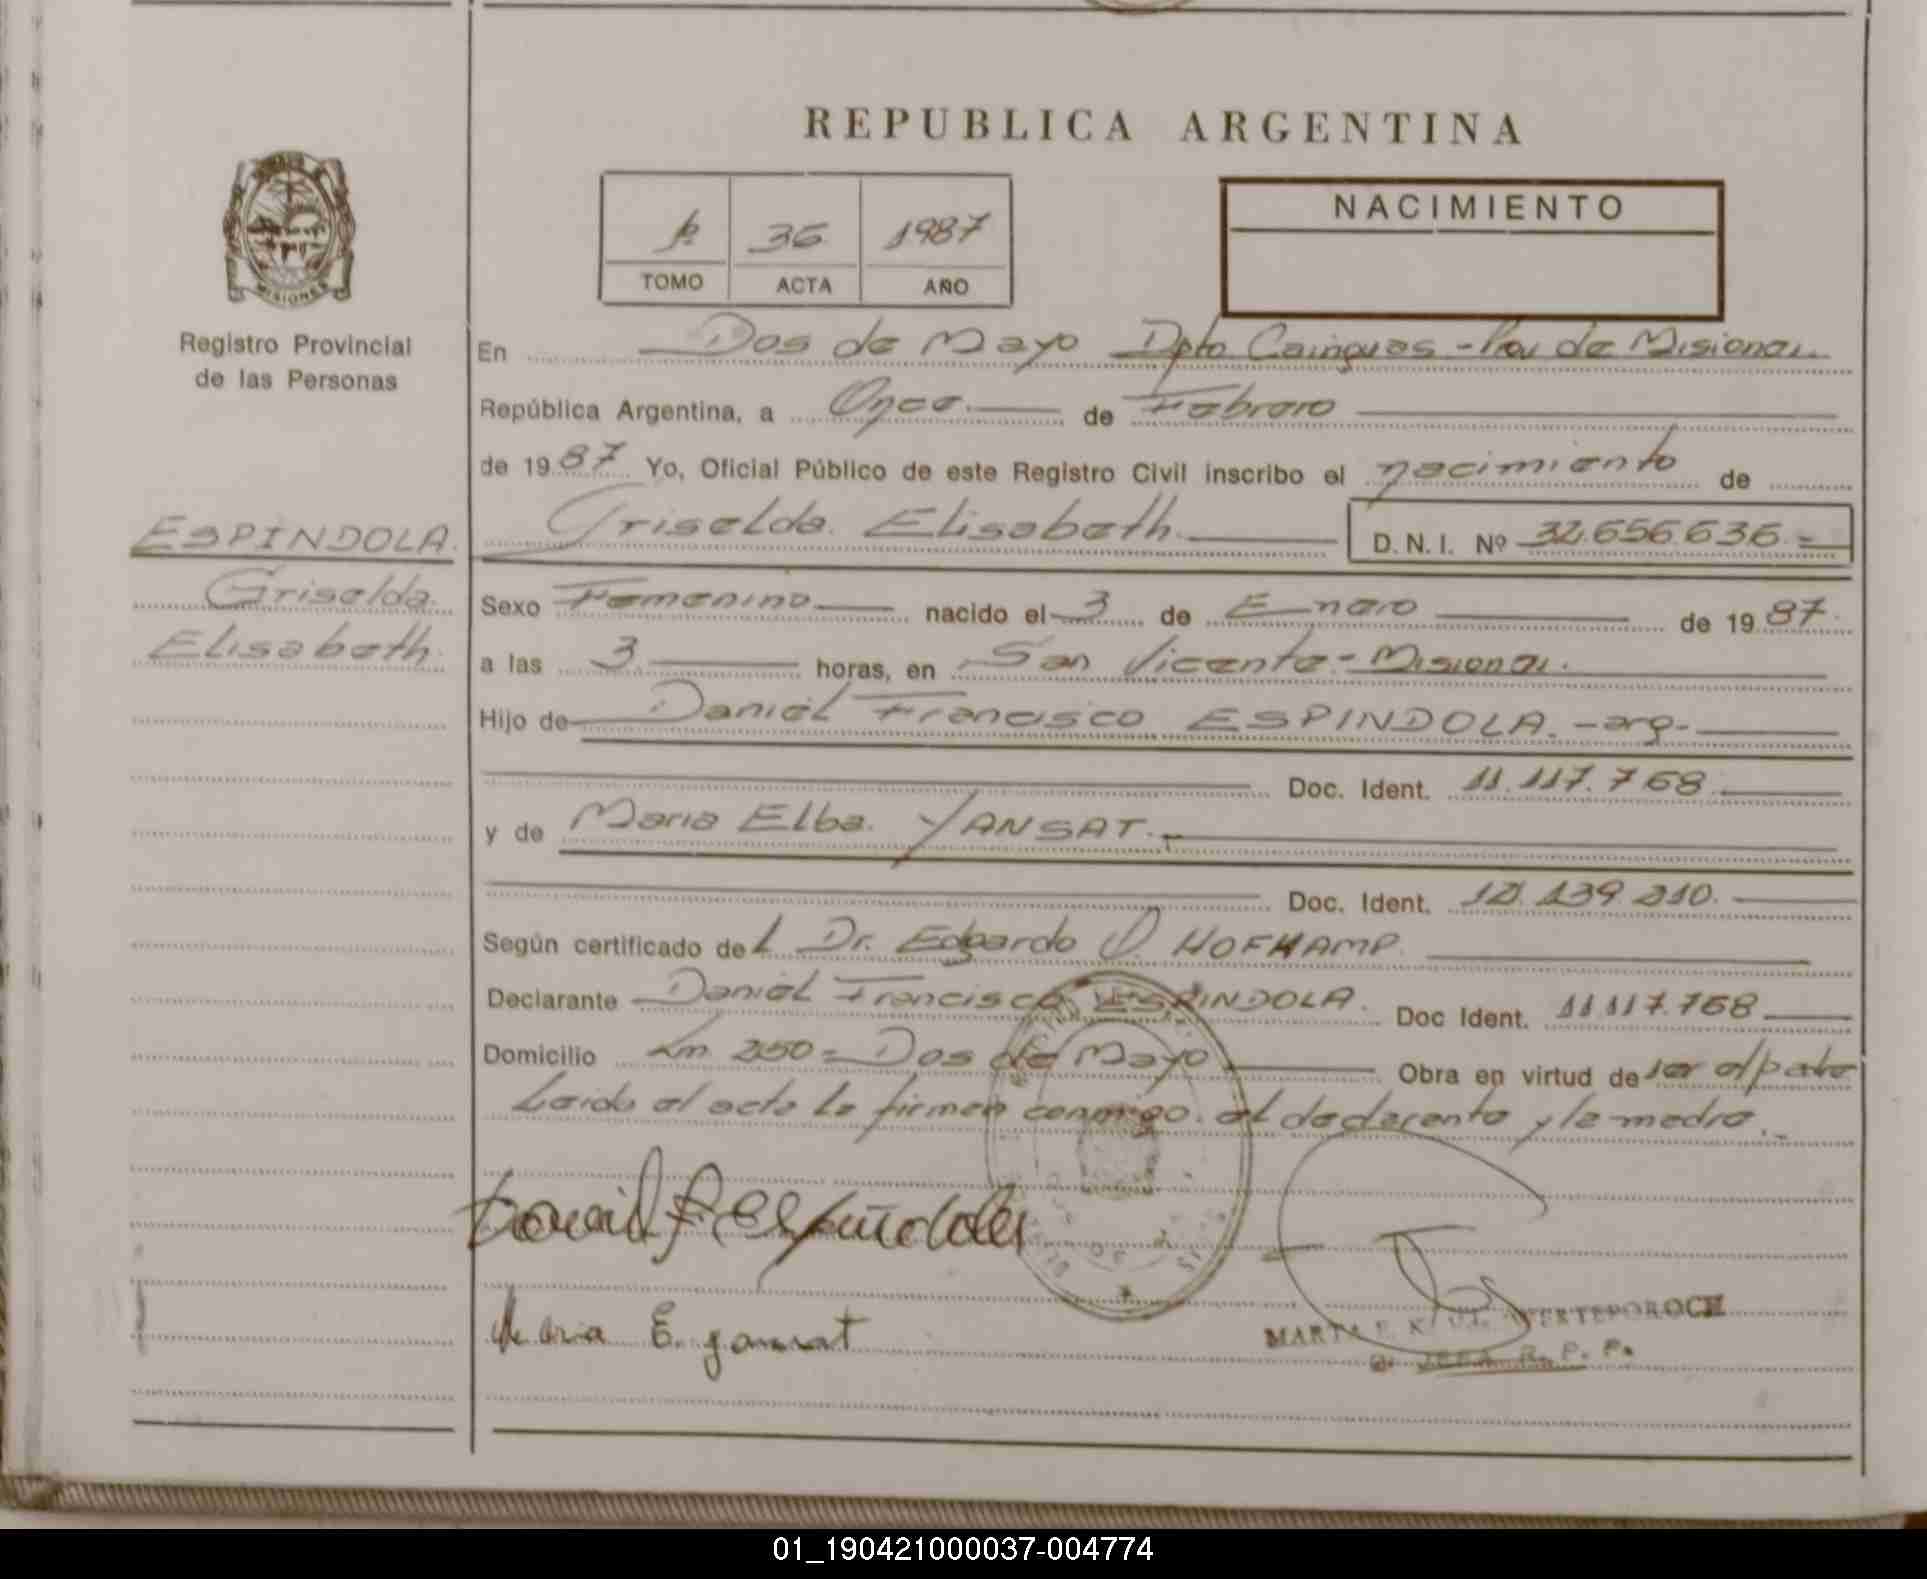 REPUBLICA ARGENTINA
1º 36 1987
TOMO ACTA AÑO
NACIMIENTO
MISIONES
Registro Provincial
de las Personas
En Dos de Mayo Dpto Cainguas - Prov de Misiones.
República Argentina, a Once de Febrero
de 1987 Yo, Oficial Público de este Registro Civil inscribo el nacimiento de
ESPINDOLA.
Griselda
Elisabeth.
Griselda Elisabeth. D.N.I. Nº 32.656.636.=
Sexo Femenino nacido el 3 de Enero de 1987.
a las 3 horas, en San Vicente - Misiones.
Hijo de Daniel Francisco ESPINDOLA. -arg-
Doc. Ident. 11.117.768.
y de Maria Elba. YANSAT.-
Doc. Ident. 12.139.210.
Según certificado del Dr. Edgardo O. HOFKAMP.
Declarante Daniel Francisco ESPINDOLA. Doc Ident. 11.117.768
Domicilio Km 250= Dos de Mayo Obra en virtud de ser el padre
Leida el acta la firman conmigo. el declarante y la madre.-
Daniel F. Espindola
Maria E. Yansat
MARTA WERTEPOROCH
JEFA R. P. P.
01_190421000037-004774